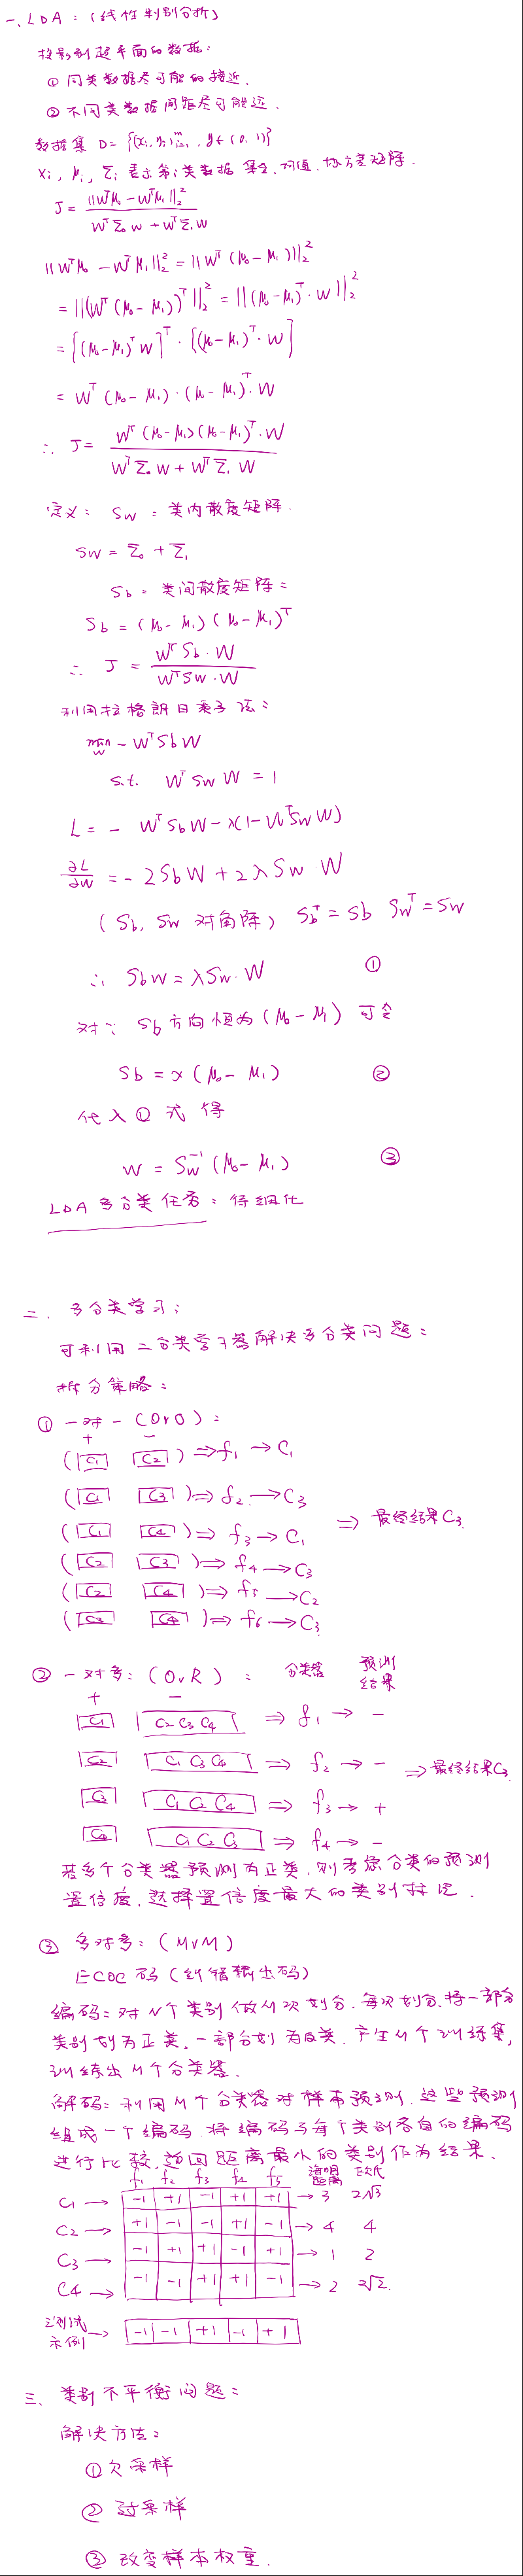 一. LDA:(线性判别分析)
投影到超平面的数据:
① 同类数据尽可能的接近.
② 不同类数据间距尽可能远.
数据集 D= {(xi, yi)}ᵐᵢ₌₁, y∈(0,1)}
Xi, μi, Σi 表示第i类数据 集合,均值,协方差矩阵.
J = ||WᵀM₀ - WᵀM₁||₂² / WᵀΣ₀W + WᵀΣ₁W
||WᵀM₀ - WᵀM₁||₂² = ||Wᵀ(M₀-M₁)||₂²
= ||(Wᵀ(M₀-M₁))ᵀ||₂² = ||(M₀-M₁)ᵀ·W||₂²
= [(M₀-M₁)ᵀW]ᵀ·[(M₀-M₁)ᵀ·W]
= Wᵀ(M₀-M₁)·(M₀-M₁)ᵀ·W
∴ J = Wᵀ(M₀-M₁)(M₀-M₁)ᵀ·W / WᵀΣ₀W + WᵀΣ₁W
定义: Sw: 类内散度矩阵.
Sw = Σ₀ + Σ₁
Sb: 类间散度矩阵:
Sb = (M₀-M₁)(M₀-M₁)ᵀ
∴ J = WᵀSb·W / WᵀSw·W
利用拉格朗日乘子法:
min w - WᵀSbW
s.t. WᵀSwW = 1
L = - WᵀSbW - λ(1-WᵀSwW)
∂L/∂W = -2SbW + 2λSw·W
(Sb, Sw 对角阵) Sbᵀ=Sb Swᵀ=Sw
∴ SbW = λSw·W ①
对∵ Sb方向恒为(M₀-M₁) 可令
Sb = x(M₀-M₁) ②
代入①式得
W = Sw⁻¹(M₀-M₁) ③
LDA多分类任务: 待细化
二. 多分类学习:
可利用二分类学习器解决多分类问题:
拆分策略:
① 一对一(OvO):
+ -
(C1 C2) ⇒ f1 → C1
(C1 C3) ⇒ f2 → C3
(C1 C4) ⇒ f3 → C1 ⇒ 最终结果C3.
(C2 C3) ⇒ f4 → C3
(C2 C4) ⇒ f5 → C2
(C3 C4) ⇒ f6 → C3
② 一对多:(OvR): 分类器 预测结果
+ -
C1 C2 C3 C4 ⇒ f1 → -
C2 C1 C3 C4 ⇒ f2 → - ⇒ 最终结果C3.
C3 C1 C2 C4 ⇒ f3 → +
C4 C1 C2 C3 ⇒ f4 → -
若多个分类器预测为正类,则考虑分类的预测
置信度,选择置信度最大的类别标记.
③ 多对多:(MvM)
ECOC码(纠错输出码)
编码:对N个类别做M次划分,每次划分,将一部分
类别划为正类,一部分划为反类.产生M个训练集,
训练出M个分类器.
解码:利用M个分类器对样本预测.这些预测
组成一个编码.将编码与每个类别各自的编码
进行比较,返回距离最小的类别作为结果.
f1 f2 f3 f4 f5 海明距离 欧氏
C1 → -1 +1 -1 +1 +1 → 3 2√3
C2 → +1 -1 -1 +1 -1 → 4 4
C3 → -1 +1 +1 -1 +1 → 1 2
C4 → -1 -1 +1 +1 -1 → 2 2√2.
测试示例 → -1 -1 +1 -1 +1
三. 类别不平衡问题:
解决方法:
① 欠采样
② 过采样
③ 改变样本权重.